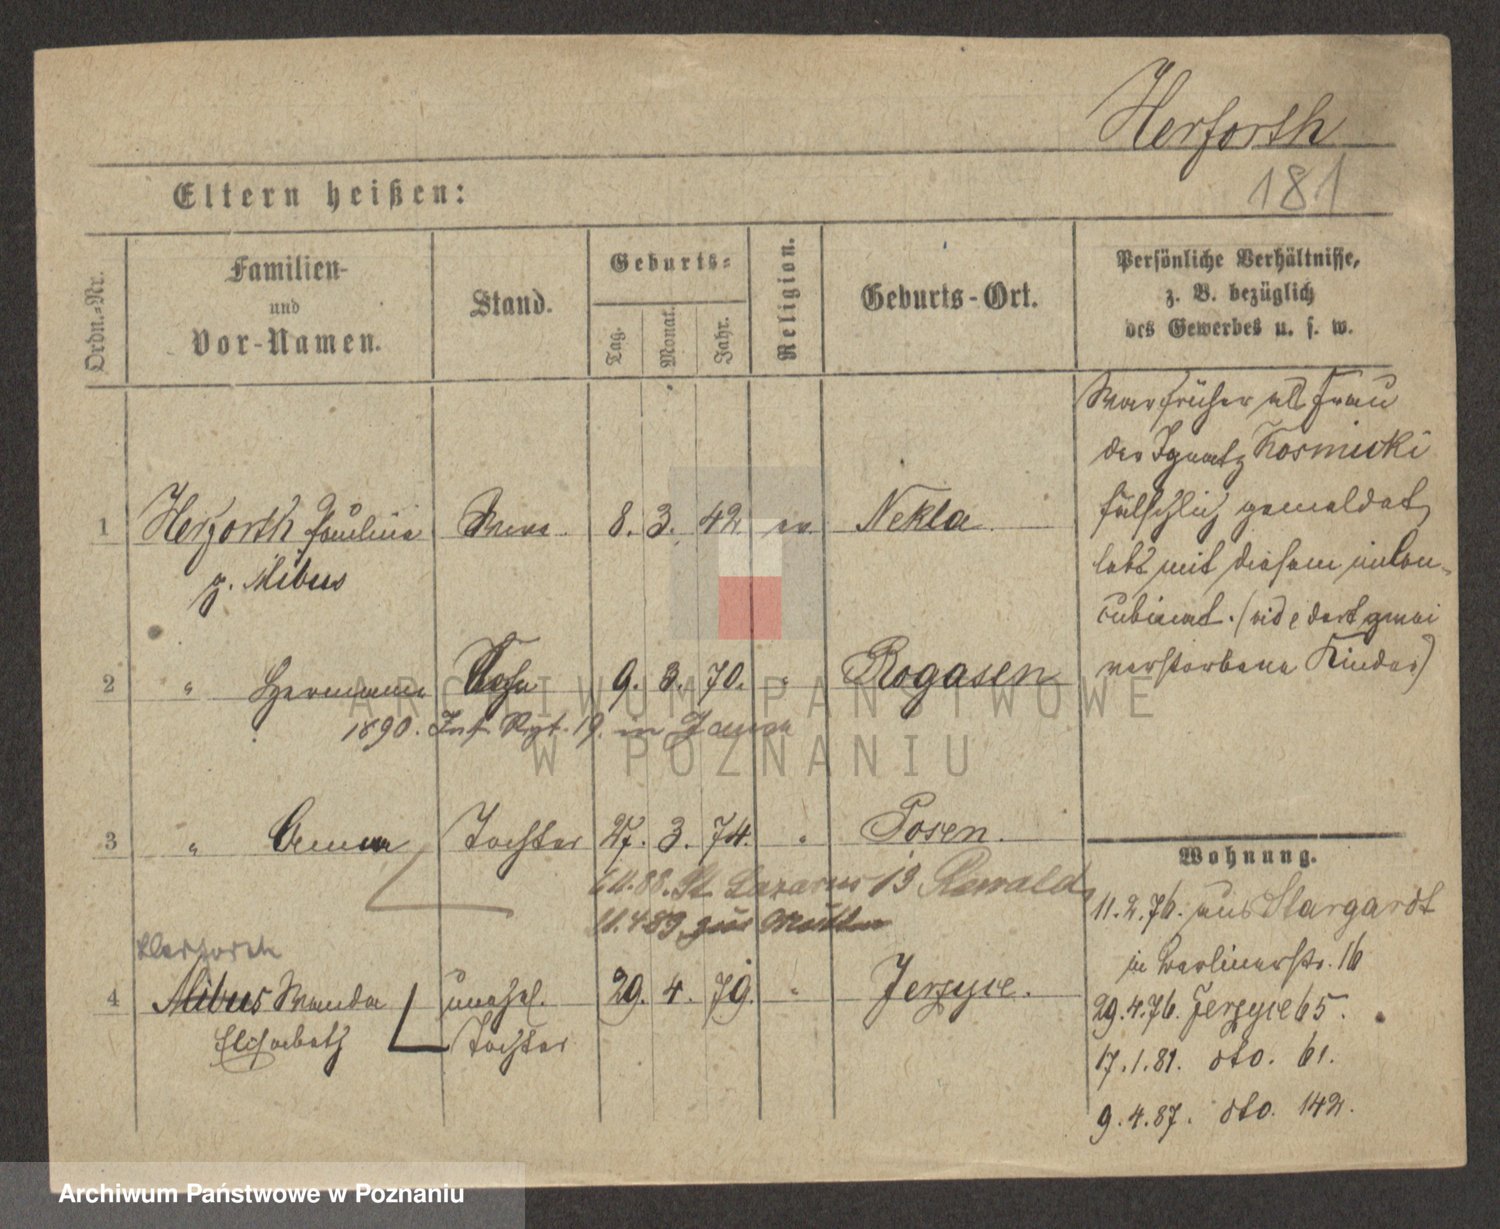 Herforth
181
Eltern heißen:
Ordn.-Nr.
Familien-
und
Vor-Namen.
Stand.
Geburts-
Tag.
Monat.
Jahr.
Religion.
Geburts-Ort.
Persönliche Verhältnisse,
z. B. bezüglich
des Gewerbes u. s. w.
War früher als Frau
des Ignatz Kosmicki
fälschlich gemeldet,
lebt mit diesem in Con-
cubinat. (vide dort zwei
verstorbene Kinder)
1 Herforth Pauline Wwe. 8. 3. 42. ev. Nekla.
g. Mibus
2 " Hermann Sohn 9. 3. 70. " Rogasen
1890. Inf. Rgt. 19. in
3 " Anna Tochter 27. 3. 74. " Posen.
St. Lazarus 13 Rewald
11.4.89 zur Mutter
Herforth
4 Mibus Wanda unehel. 29. 4. 79. " Jerzyce.
Elisabeth Tochter
Wohnung.
11.2.76. aus Stargardt
in Berlinerstr. 16
29.4.76. Jerzyce 65.
17.1.81. dto. 61.
9.4.87. dto. 142.
ARCHIWUM PAŃSTWOWE
W POZNANIU
Archiwum Państwowe w Poznaniu